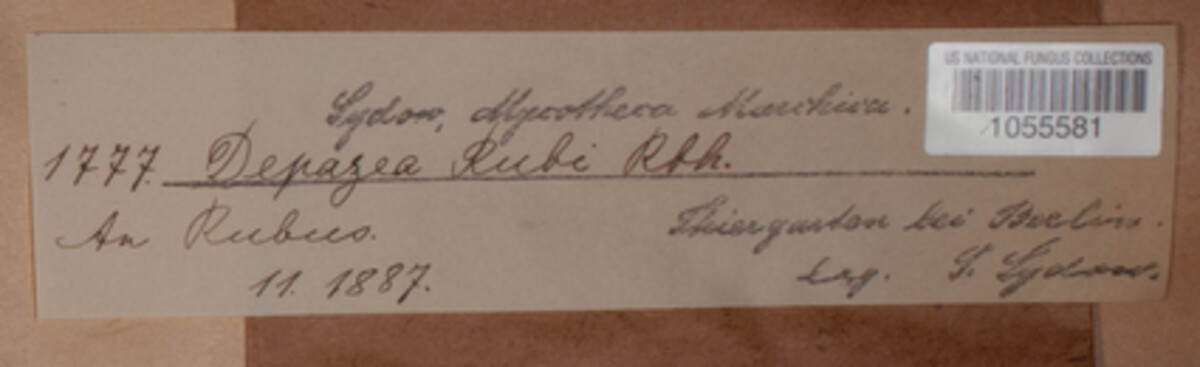 US NATIONAL FUNGUS COLLECTIONS
1055581
Sydow, Mycotheca Marchica.
1777. Depazea Rubi Rbh.
An Rubus.
Thiergarten bei Berlin.
11. 1887.
Leg. P. Sydow.